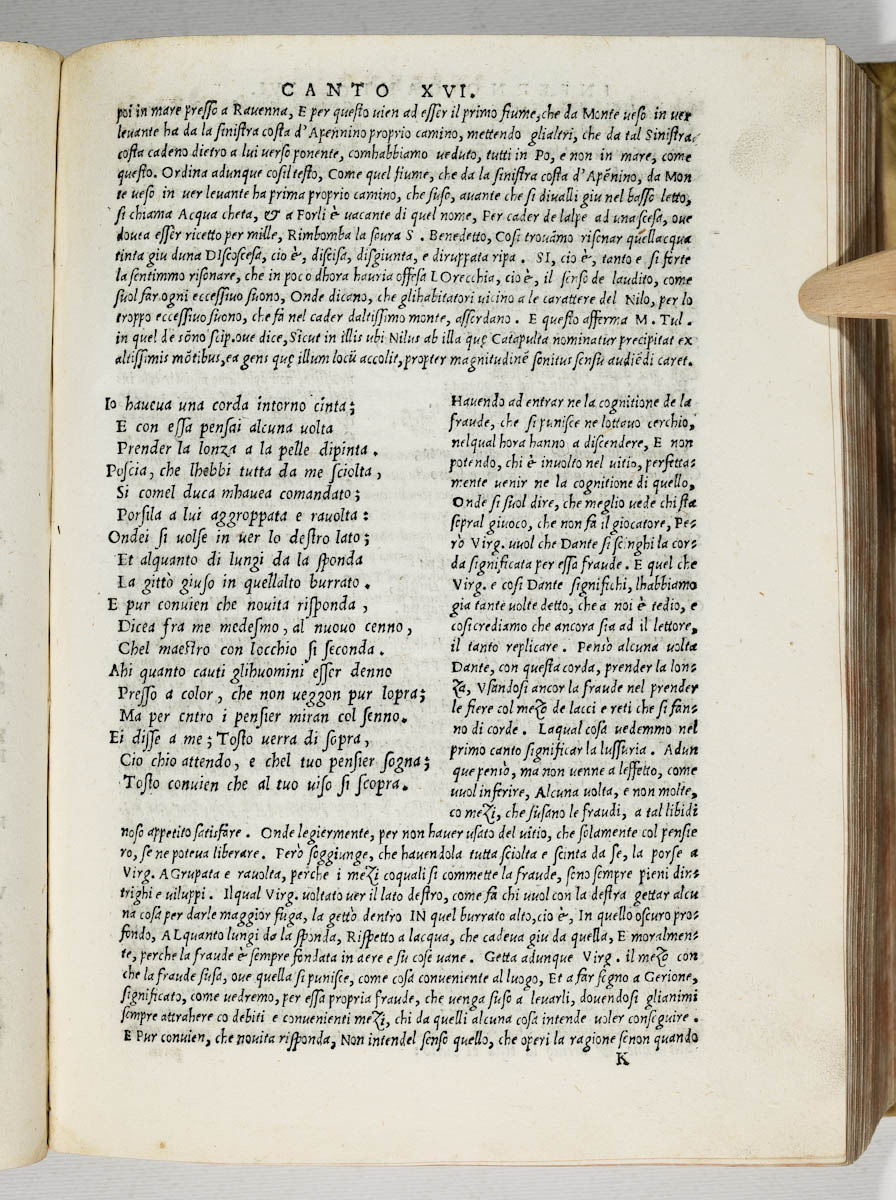 CANTO XVI.
poi in mare presso a Ravenna, E per questo uien ad esser il primo fiume, che da Monte ueso in uer
leuante ha da la sinistra costa d'Apennino proprio camino, mettendo glialtri, che da tal Sinistra
costa cadeno dietro a lui uerso ponente, comhabbiamo ueduto, tutti in Po, e non in mare, come
questo. Ordina adunque cosil testo, Come quel fiume, che da la sinistra costa d'Apẽnino, da Mon
te ueso in uer leuante ha prima proprio camino, che suso, auante che si diualli giu nel basso letto,
si chiama Acqua cheta, & a Forli è uacante di quel nome, Per cader de lalpe ad una scesa, oue
douea esser ricetto per mille, Rimbomba la soura S. Benedetto, Cosi trouãmo risonar quellacqua
tinta giu duna DIscoscesa, cio è, discisa, disgiunta, e diruppata ripa. SI, cio è, tanto e si forte
la sentimmo risonare, che in poco dhora hauria offesa LOrecchia, cio è, il senso de laudito, come
suol far ogni eccessiuo suono, Onde dicano, che glihabitatori uicino a le carattere del Nilo, per lo
troppo eccessiuo suono, che fa nel cader daltissimo monte, assordano. E questo afferma M. Tul.
in quel de sõno scip. oue dice, Sicut in illis ubi Nilus ab illa quę Catapulta nominatur precipitat ex
altissimis mõtibus, ea gens quę illum locũ accolit, propter magnitudinẽ sonitus sensu audiẽdi caret.
Io haueua una corda intorno cinta;
E con essa pensai alcuna uolta
Prender la lonza a la pelle dipinta.
Poscia, che lhebbi tutta da me sciolta,
Si comel duca mhauea comandato;
Porsila a lui aggroppata e rauolta:
Ondei si uolse in uer lo destro lato;
Et alquanto di lungi da la sponda
La gittò giuso in quellalto burrato.
E pur conuien che nouita risponda,
Dicea fra me medesmo, al nuouo cenno,
Chel maestro con locchio si seconda.
Ahi quanto cauti glihuomini esser denno
Presso a color, che non ueggon pur lopra;
Ma per entro i pensier miran col senno.
Ei disse a me; Tosto uerra di sopra,
Cio chio attendo, e chel tuo pensier sogna;
Tosto conuien che al tuo uiso si scopra.
Hauendo ad entrar ne la cognitione de la
fraude, che si punisce ne lottauo cerchio,
nelqual hora hanno a discendere, E non
potendo, chi è inuolto nel uitio, perfetta-
mente uenir ne la cognitione di quello,
Onde si suol dire, che meglio uede chi sta
sepral giuoco, che non fa il giocatore, Pe-
rò Virg. uuol che Dante si scinghi la cor-
da significata per essa fraude. E quel che
Virg. e cosi Dante significhi, lhabbiamo
gia tante uolte detto, che a noi è tedio, e
cosi crediamo che ancora sia ad il lettore,
il tanto replicare. Pensò alcuna uolta
Dante, con questa corda, prender la lon-
za, Vsandosi ancor la fraude nel prender
le fiere col mezo de lacci e reti che si fan-
no di corde. Laqual cosa uedemmo nel
primo canto significar la lussuria. Adun
que pensò, ma non uenne a leffetto, come
uuol inferire, Alcuna uolta, e non molte,
co mezi, che susano le fraudi, a tal libidi
noso appetito satisfare. Onde legiermente, per non hauer usato del uitio, che solamente col pensie
ro, se ne poteua liberare. Però soggiunge, che hauendola tutta sciolta e scinta da se, la porse a
Virg. AGrupata e rauolta, perche i mezi coquali si commette la fraude, sono sempre pieni din-
trighi e uiluppi. Ilqual Virg. uoltato uer il lato destro, come fa chi uuol con la destra gettar alcu
na cosa per darle maggior fuga, la gettò dentro IN quel burrato alto, cio è, In quello oscuro pro-
fondo, ALquanto lungi da la sponda, Rispetto a lacqua, che cadeua giu da quella, E moralmen-
te, perche la fraude è sempre fondata in aere e su cose uane. Getta adunque Virg. il mezo con
che la fraude susa, oue quella si punisce, come cosa conueniente al luogo, Et a far segno a Gerione,
significato, come uedremo, per essa propria fraude, che uenga suso a leuarli, douendosi glianimi
sempre attrahere co debiti e conuenienti mezi, chi da quelli alcuna cosa intende uoler conseguire.
E Pur conuien, che nouita risponda, Non intendel senso quello, che operi la ragione senon quando
K